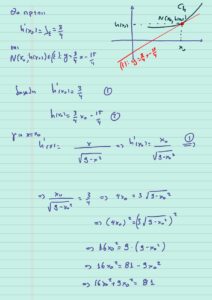 Θα πρέπει
h'(x₀) = λε = 3/4
και
N(x₀, h(x₀)) ∈ (ε): y = 3/4 x - 15/4
C_h
N(x₀, h(x₀))
h(x₀)
x₀
(ε): y = 3/4 x - 15/4
δηλαδή h'(x₀) = 3/4 ①
h(x₀) = 3/4 x₀ - 15/4 ②
για x = x₀
h'(x) = x / √(9-x²) ⇒ h'(x₀) = x₀ / √(9-x₀²) ①⇒
⇒ x₀ / √(9-x₀²) = 3/4 ⇒ 4x₀ = 3√(9-x₀²)
⇒ (4x₀)² = (3√(9-x₀²))²
⇒ 16x₀² = 9·(9-x₀²)
⇒ 16x₀² = 81 - 9x₀²
⇒ 16x₀² + 9x₀² = 81